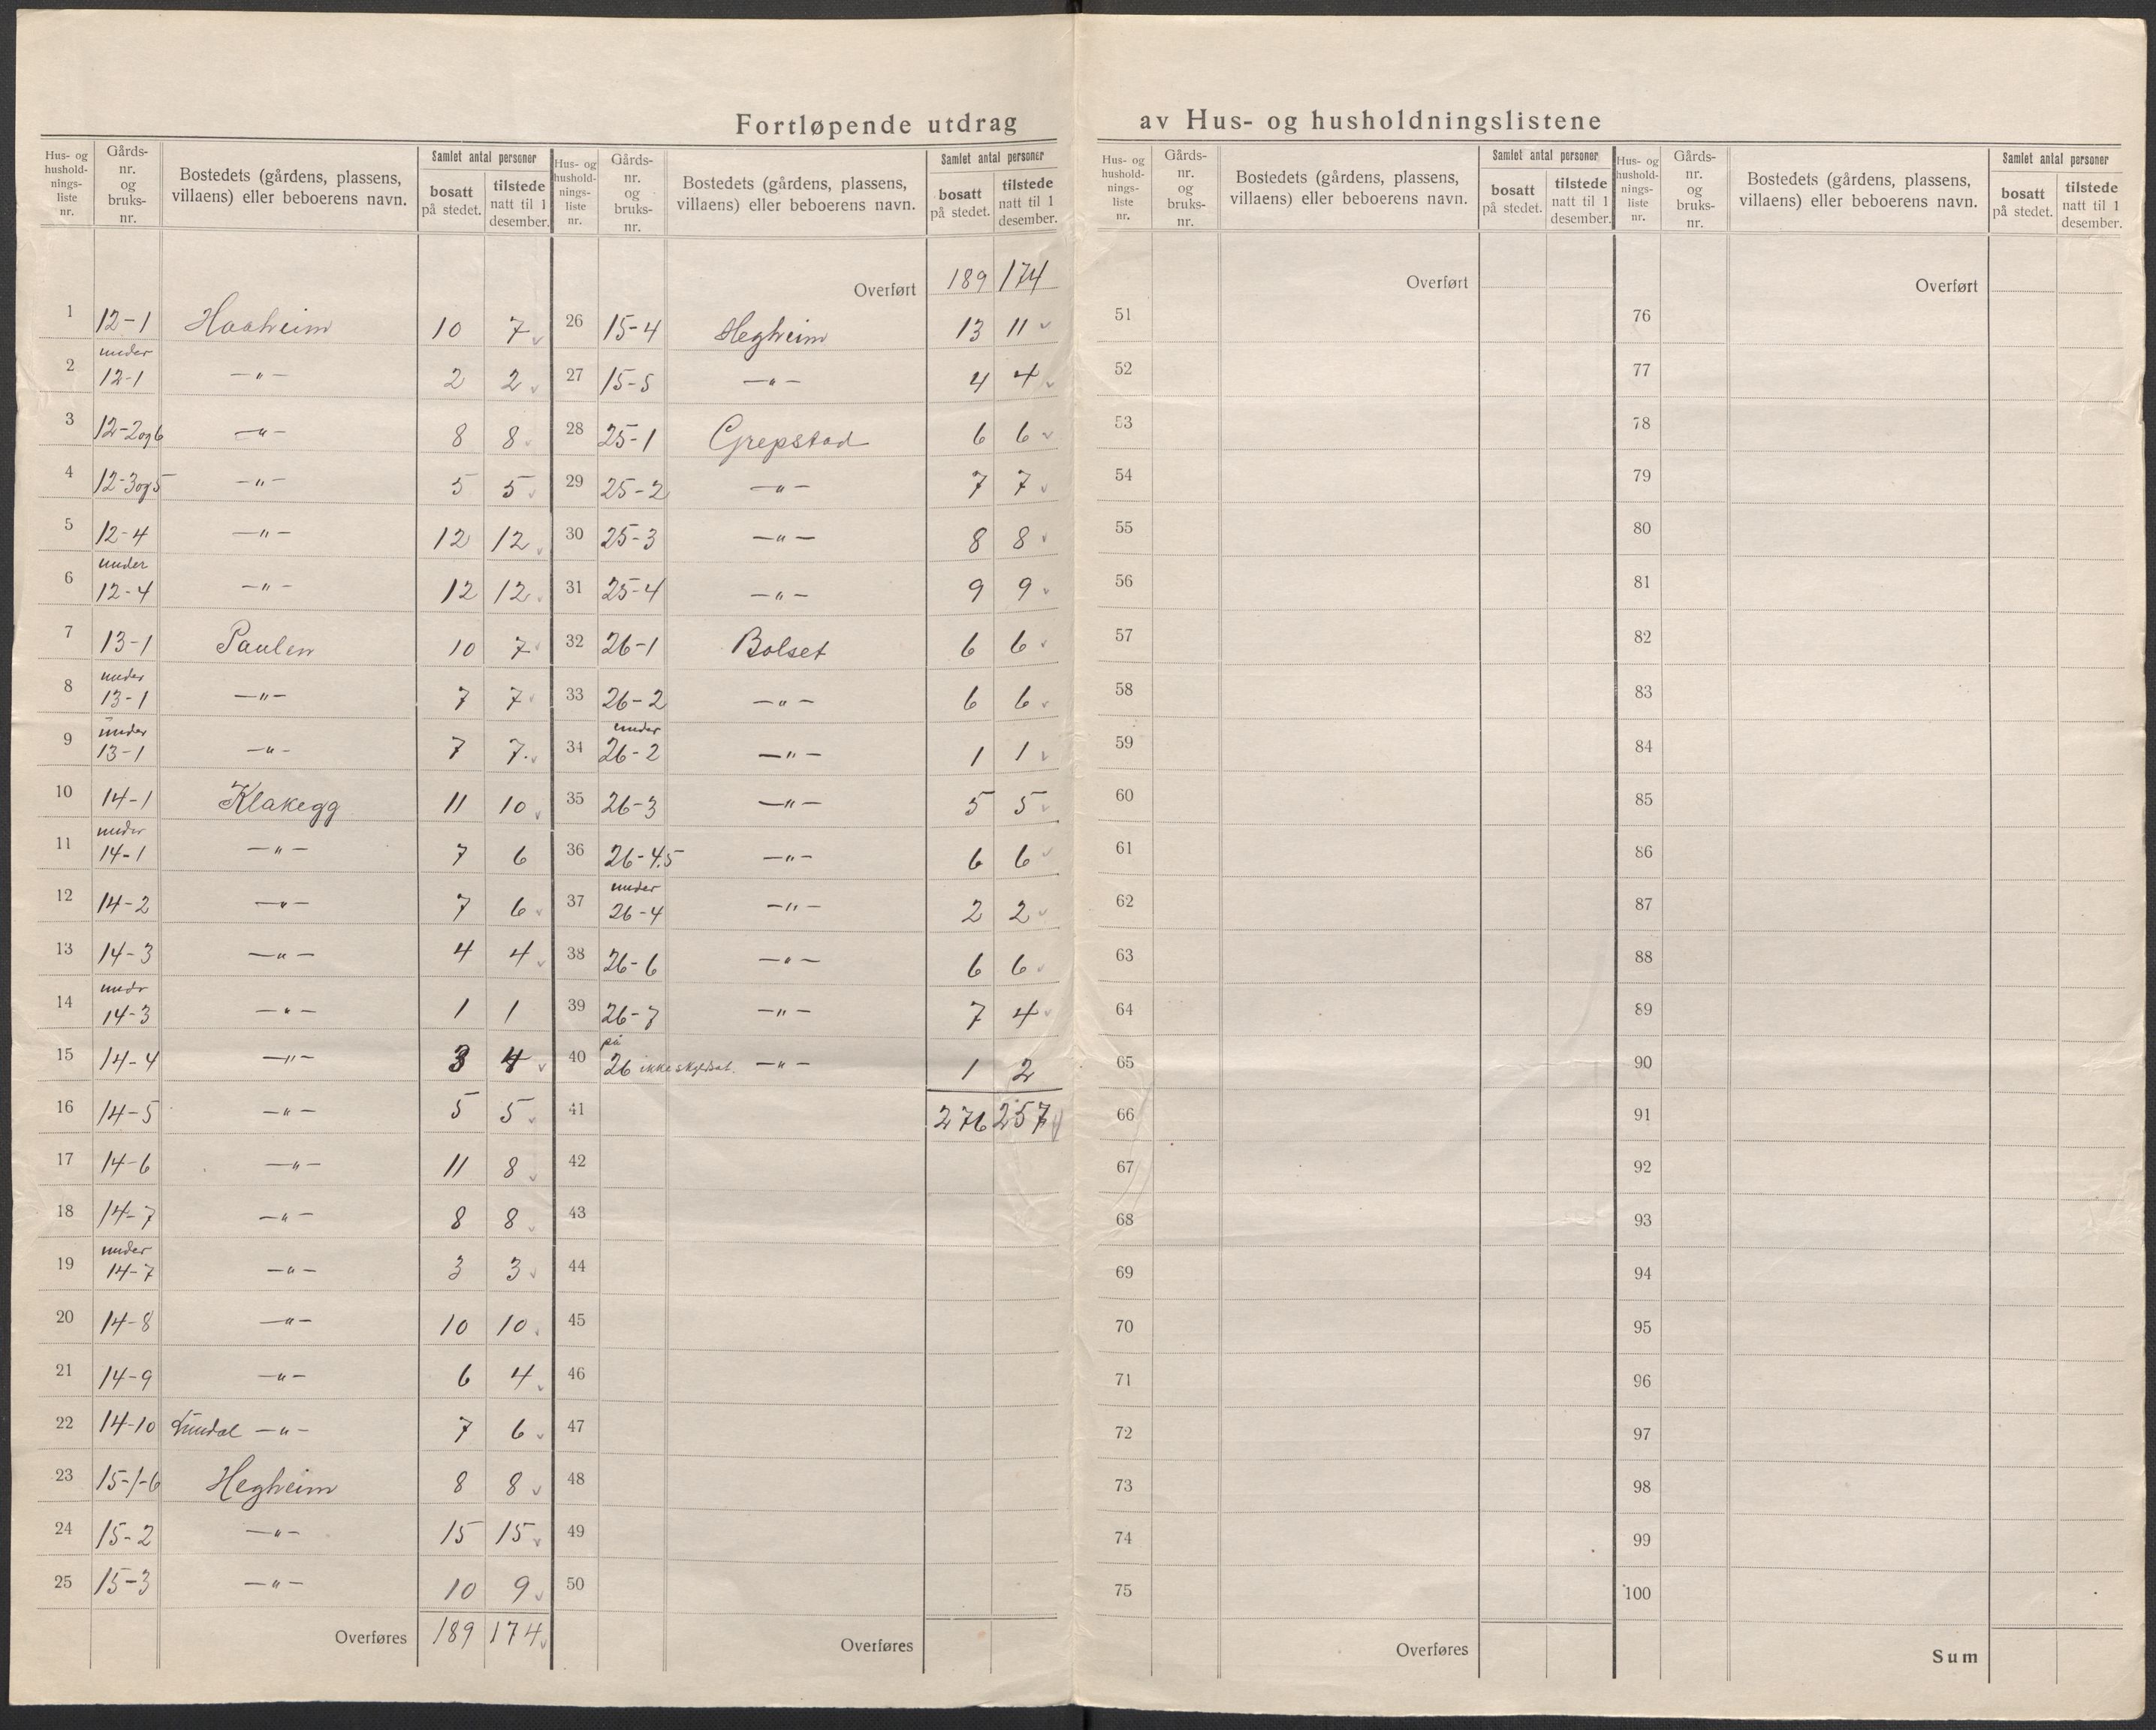 Fortløpende utdrag av Hus- og husholdningslistene
Hus- og hushold-nings-liste nr. | Gårds-nr. og bruks-nr. | Bostedets (gårdens, plassens, villaens) eller beboerens navn. | Samlet antal personer | bosatt på stedet. | tilstede natt til 1 desember.
1 | 12-1 | Haaheim | 10 | 7
2 | under 12-1 | —"— | 2 | 2
3 | 12-2 og 6 | —"— | 8 | 8
4 | 12-3 og 5 | —"— | 5 | 5
5 | 12-4 | —"— | 12 | 12
6 | under 12-4 | —"— | 12 | 12
7 | 13-1 | Paulen | 10 | 7
8 | under 13-1 | —"— | 7 | 7
9 | under 13-1 | —"— | 7 | 7
10 | 14-1 | Klakegg | 11 | 10
11 | under 14-1 | —"— | 7 | 6
12 | 14-2 | —"— | 7 | 6
13 | 14-3 | —"— | 4 | 4
14 | undr 14-3 | —"— | 1 | 1
15 | 14-4 | —"— | 3 | 4
16 | 14-5 | —"— | 5 | 5
17 | 14-6 | —"— | 11 | 8
18 | 14-7 | —"— | 8 | 8
19 | under 14-7 | —"— | 3 | 3
20 | 14-8 | —"— | 10 | 10
21 | 14-9 | —"— | 6 | 4
22 | 14-10 | —"— | 7 | 6
23 | 15-1-6 | Hegheim | 8 | 8
24 | 15-2 | —"— | 15 | 15
25 | 15-3 | —"— | 10 | 9
Overføres | 189 | 174
Hus- og hushold-nings-liste nr. | Gårds-nr. og bruks-nr. | Bostedets (gårdens, plassens, villaens) eller beboerens navn. | Samlet antal personer | bosatt på stedet. | tilstede natt til 1 desember.
Overført | 189 | 174
26 | 15-4 | Hegheim | 13 | 11
27 | 15-5 | —"— | 4 | 4
28 | 25-1 | Grepstad | 6 | 6
29 | 25-2 | —"— | 7 | 7
30 | 25-3 | —"— | 8 | 8
31 | 25-4 | —"— | 9 | 9
32 | 26-1 | Bolset | 6 | 6
33 | 26-2 | —"— | 6 | 6
34 | under 26-2 | —"— | 1 | 1
35 | 26-3 | —"— | 5 | 5
36 | 26-4.5 | —"— | 6 | 6
37 | under 26-4 | —"— | 2 | 2
38 | 26-6 | —"— | 6 | 6
39 | 26-7 | —"— | 7 | 4
40 | på 26 ikke skyldsat. | —"— | 1 | 2
41 | 276 | 257
42
43
44
45
46
47
48
49
50
Overføres
Hus- og hushold-nings-liste nr. | Gårds-nr. og bruks-nr. | Bostedets (gårdens, plassens, villaens) eller beboerens navn. | Samlet antal personer | bosatt på stedet. | tilstede natt til 1 desember.
Overført
51
52
53
54
55
56
57
58
59
60
61
62
63
64
65
66
67
68
69
70
71
72
73
74
75
Overføres
Hus- og hushold-nings-liste nr. | Gårds-nr. og bruks-nr. | Bostedets (gårdens, plassens, villaens) eller beboerens navn. | Samlet antal personer | bosatt på stedet. | tilstede natt til 1 desember.
Overført
76
77
78
79
80
81
82
83
84
85
86
87
88
89
90
91
92
93
94
95
96
97
98
99
100
Sum